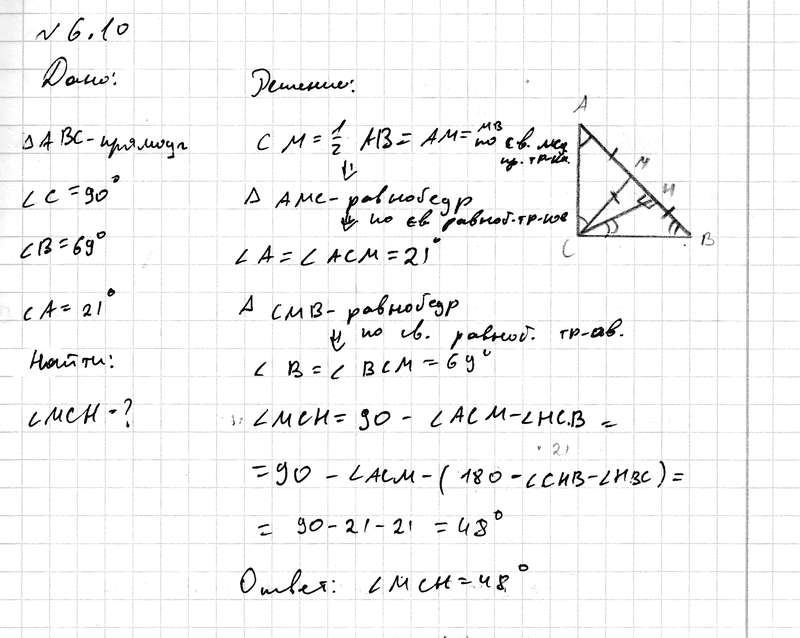 №6.10
Дано:
△ABC - прямоуг
∠C = 90°
∠B = 69°
∠A = 21°
Найти:
∠MCH - ?
Решение:
CM = 1/2 AB = AM = MB по св. мед. пр. тр-ка.
⇓
△ AMC - равнобедр
⇓ по св равноб. тр-ков
∠A = ∠ACM = 21°
△ CMB - равнобедр
⇓ по св. равноб. тр-ов.
∠ B = ∠ BCM = 69°
∠MCH = 90 - ∠ACM - ∠HCB =
21
= 90 - ∠ACM - (180 - ∠CHB - ∠HBC) =
= 90 - 21 - 21 = 48°
Ответ: ∠MCH = 48°
A
M
H
C
B